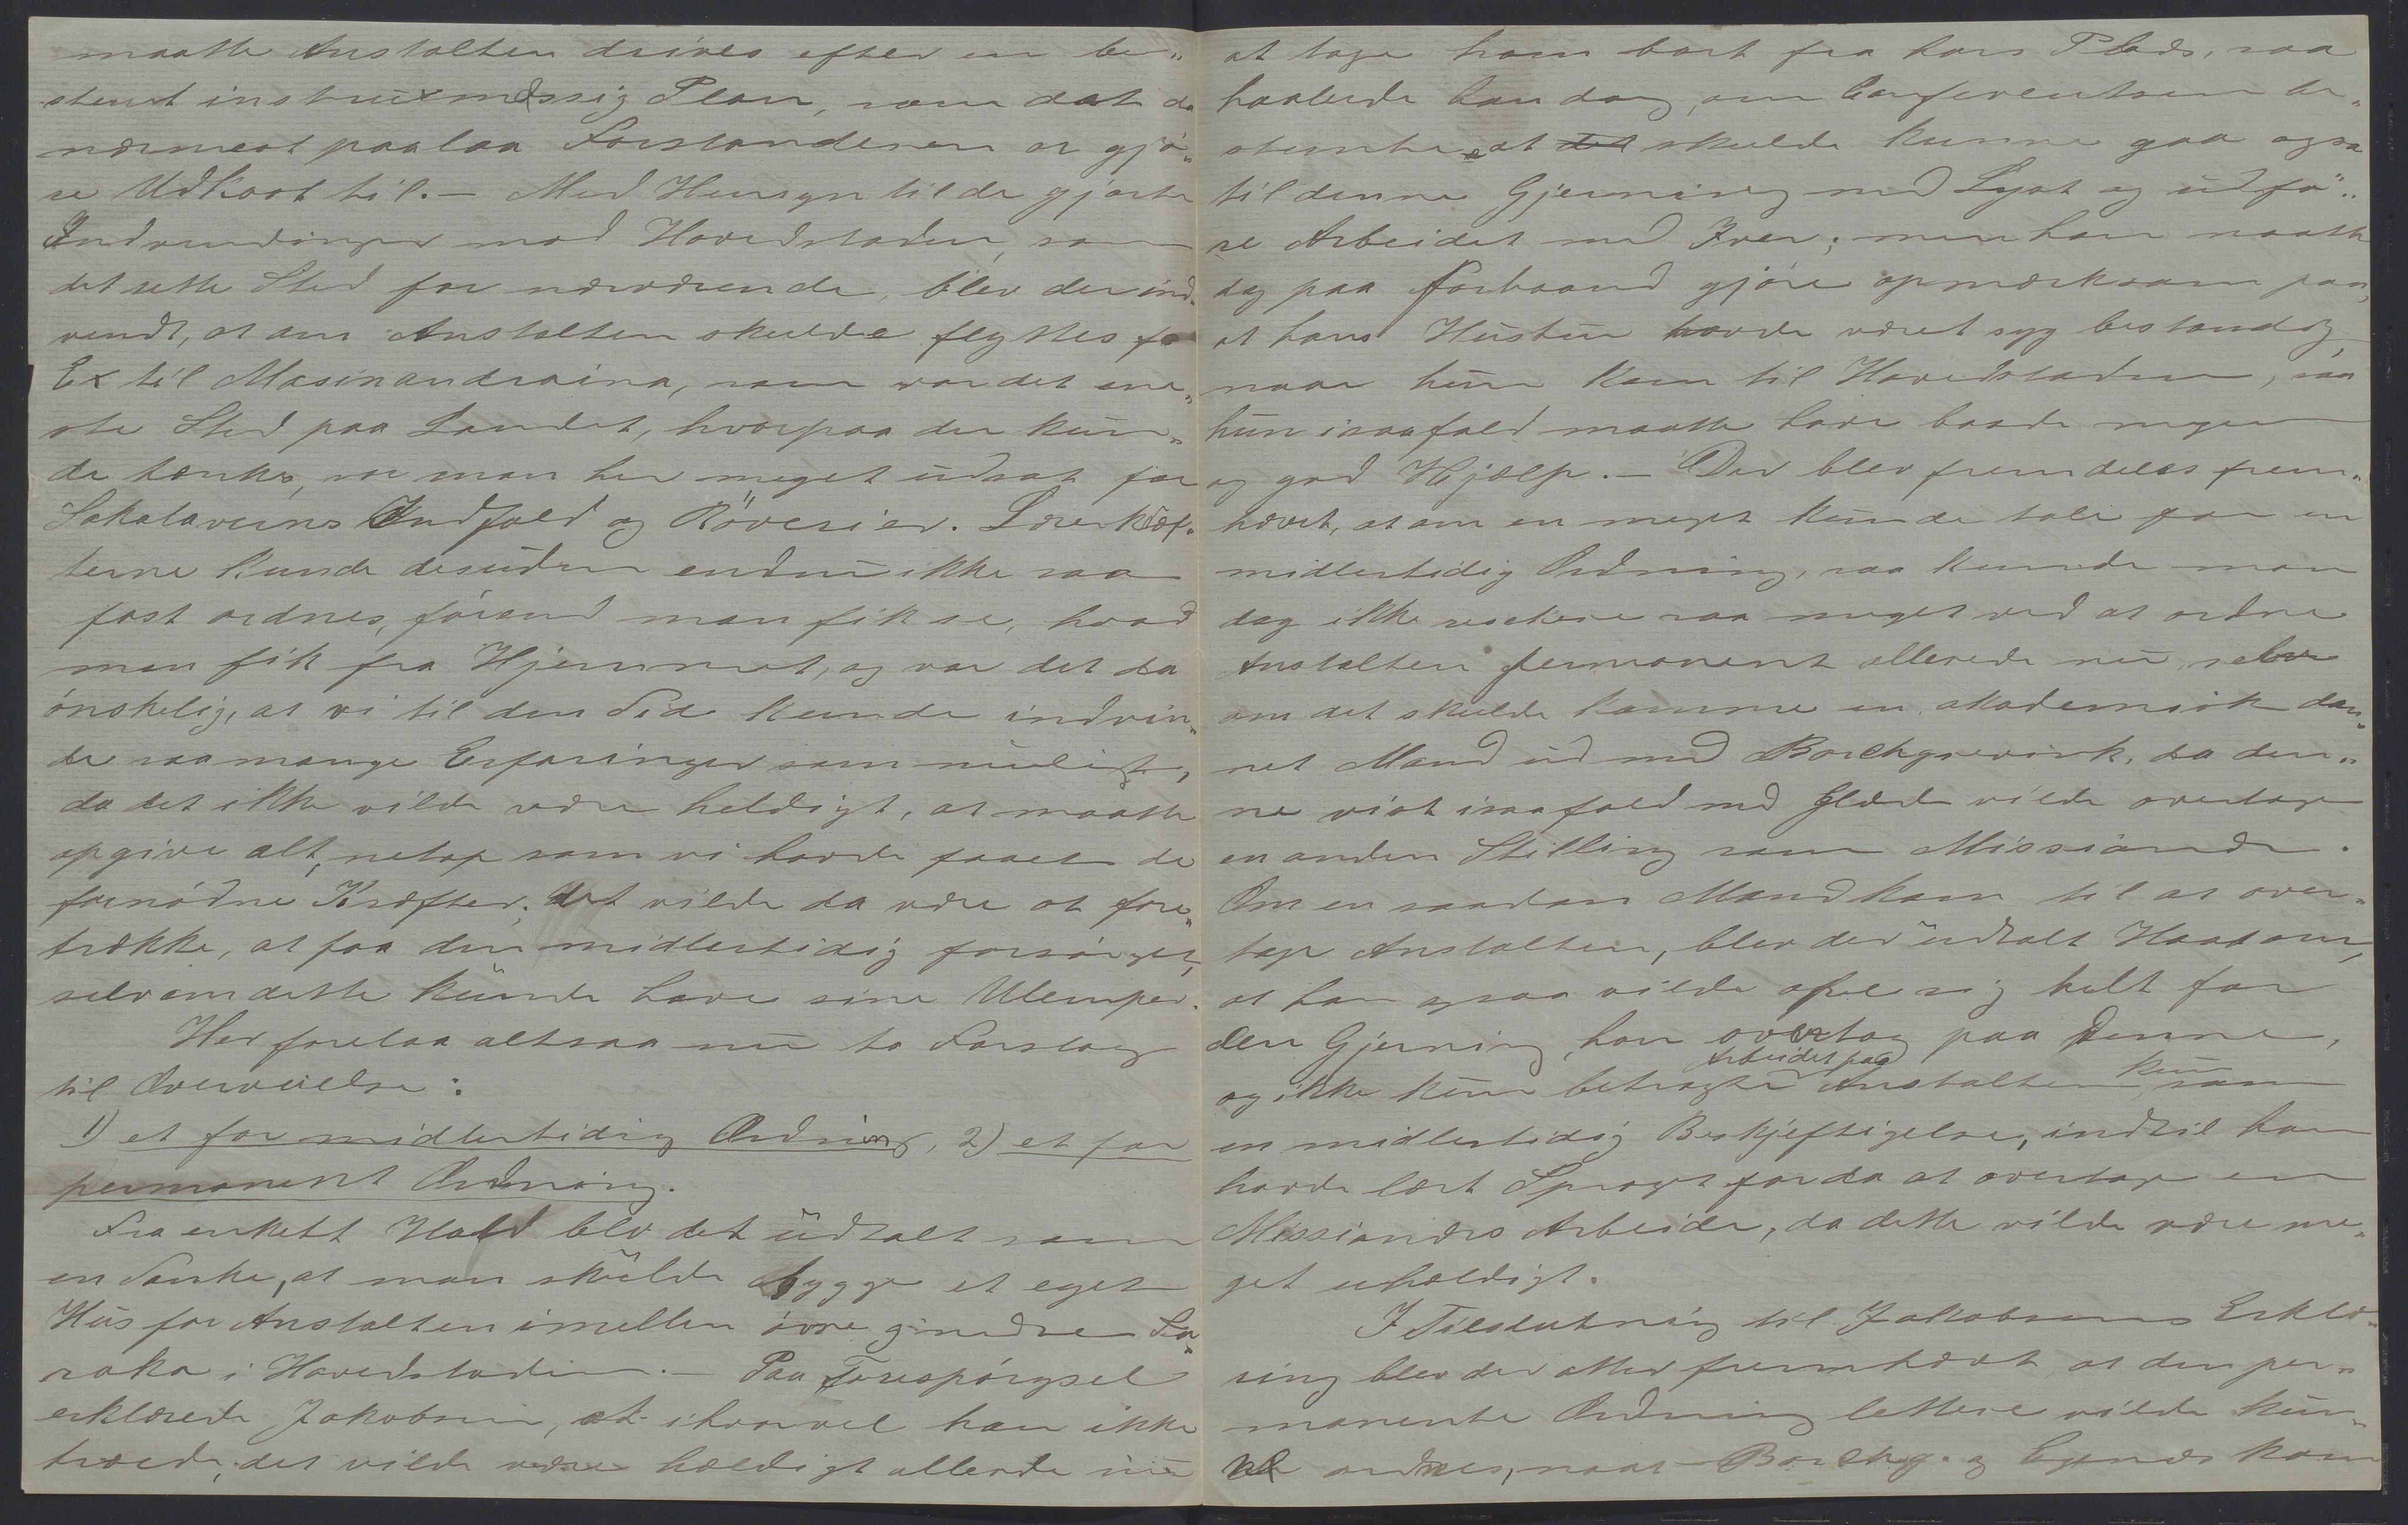 maatte Anstalten drives efter en be„
stemt instruxmæssig Plan, som det da
nærmest paalaa Forstanderen at gjö„
re Udkast til. – Med Hensyn til de gjorte
Indvendinger mod Hovedstaden, som
det rette Sted for nærværende, blev der ind„
vendt, at om Anstalten skulde flyttes f.
Ex til Masinandraina, som var det ene„
ste Sted paa Landet, hvorpaa der kun„
de tænkes, var man her meget udsat for
Sakalavernes Indfald og Röverier. Lærerkræf„
terne kunde desuden endnu ikke saa
fast ordnes, förend man fik se, hvad
man fik fra Hjemmet, og var det da
önskelig, at vi til den Tid kunde indvin„
de saa mange Erfaringer som muligt,
da det ikke vilde være heldigt, at maatte
opgive alt, netop som vi havde faaet de
fornödne Kræfter; det vilde da være at fore„
trække, at faa den midlertidig forsörget,
selv om dette kunde have sine Ulemper.
Her forelaa altsaa nu to Forslag
til Overveielse:
1) et for midlertidig Ordning, 2) et for
permanent Ordning.
Fra enkelt Hold blev det udtalt som
en Tanke, at man skulde bygge et eget
Hus for Anstalten imellem övre og nedre Fa„
raka i Hovedstaden. – Paa Forespörgsel
erklærede Jakobsen, at ihvorvel han ikke
troede, det vilde være heldigt allerede nu
at tage ham bort fra hans Plads, saa
haabede han dog, om Conferentsen be„
stemte det at skulde kunne gaa ogsaa
til denne Gjerning med Lyst og udfö„
re Arbeidet med Iver; men han maatte
dog paa Forhaand gjöre opmærksom paa,
at hans Hustru havde været syg bestandig,
naar hun kom til Hovedstaden, saa
hun isaafald maatte have baade megen
og god Hjælp. – Der blev fremdeles frem„
hævet, at om en meget kunde tale for en
midlertidig Ordning, saa kunde man
dog ikke reskere saa meget ved at ordne
Anstalten permanent allerede nu, selv
om det skulde komme en akademisk dan„
net Mand ud med Borchgrevink, da den„
ne vist isaafald med Glæde vilde overtage
en anden Stilling som Missionær.
Om en saadan Mand kom til at over„
tage Anstalten, blev der udtalt Haab om,
at han ogsaa vilde ofre sig helt for
den Gjerning, han overtog paa denne,
og ikke kun betragte Arbeidet paa Anstalten kun som
en midlertidig Beskjeftigelse, indtil han
havde lært Sproget for da at overtage en
Missionærs Arbeide, da dette vilde være me„
get uheldigt.
I Tilslutning til Jakobsens Erklæ„
ring blev der atter fremhævet, at den per„
manente Ordning lettere vilde kun„
ne ordnes, naar Borchg. og Egenæs kom